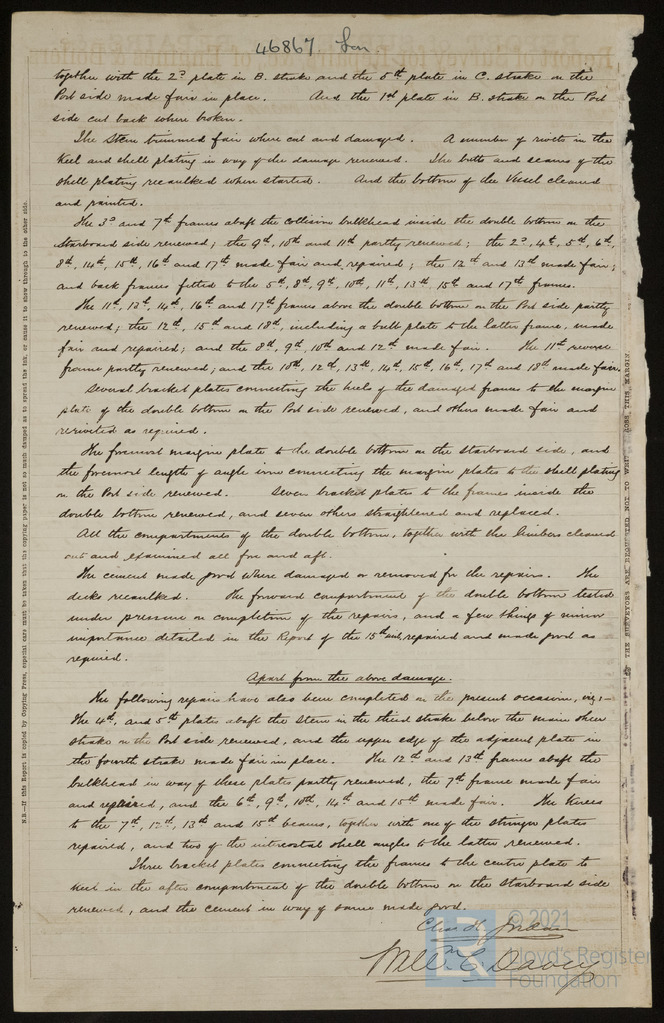 46867. Lon
together with the 2d plate in B. strake and the 5th plate in C. strake on the
Port side made fair in place. And the 1st plate in B. strake on the Port
side cut back where broken.
The Stem trimmed fair where cut and damaged. A number of rivets in the
Keel and shell plating in way of the damage renewed. The butts and seams of the
shell plating recaulked where started. And the bottom of the Vessel cleaned
and painted.
The 3d and 7th frames abaft the collision bulkhead inside the double bottom on the
Starboard side renewed; the 9th, 10th and 11th partly renewed; the 2d, 4th, 5th, 6th,
8th, 14th, 15th, 16th and 17th made fair and repaired; the 12th and 13th made fair;
and back frames fitted to the 5th, 8th, 9th, 10th, 11th, 13th 15th and 17th frames.
The 11th, 13th, 14th, 16th and 17th frames above the double bottom on the Port side partly
renewed; the 12th, 15th and 18th, including a butt plate to the latter frame, made
fair and repaired; and the 8th, 9th, 10th and 12th made fair. The 11th reverse
frame partly renewed; and the 10th, 12th, 13th, 14th, 15th, 16th, 17th and 18th made fair.
Several bracket plates connecting the heels of the damaged frames to the margin
plate of the double bottom on the Port side renewed, and others made fair and
rerivited as required.
The foremost margin plate to the double bottom on the starboard side, and
the foremost length of angle iron connecting the margin plates to the shell plating
on the Port side renewed. Seven bracket plates to the frames inside the
double bottom renewed, and seven others straightened and replaced.
All the compartments of the double bottom, together with the limbers cleaned
out and examined all fore and aft.
The cement made good where damaged or removed for the repairs. The
decks recaulked. The forward compartment of the double bottom tested
under pressure on completion of the repairs, and a few things of minor
importance detailed in the Report of the 15th repaired and made good as
required.
Apart from the above damage.
The following repairs have also been completed on the present occasion, viz:—
The 4th, and 5th plates abaft the Stem in the third strake below the main sheer
strake on the Port side renewed, and the upper edge of the adjacent plate in
the fourth strake made fair in place. The 12th and 13th frames abaft the
bulkhead in way of these plates partly renewed, the 7th frame made fair
and repaired, and the 6th, 9th, 10th, 14th and 15th made fair. The Knees
to the 7th, 12th, 13th and 15th beams, together with one of the stringer plates
repaired, and two of the intercostal shell angles to the latter renewed.
Three bracket plates connecting the frames to the centre plate to
Keel in the after compartment of the double bottom on the Starboard side
renewed, and the cement in way of same made good.
Chas H. Jordan
Wm C. Davey
N.B.—If this Report is copied by Copying Press, especial care must be taken that the copying paper is not so much damped as to spread the ink, or cause it to show through to the other side.
THE SURVEYORS ARE REQUESTED NOT TO WRITE ACROSS THIS MARGIN.
© 2021
Lloyd's Register
Foundation
LR